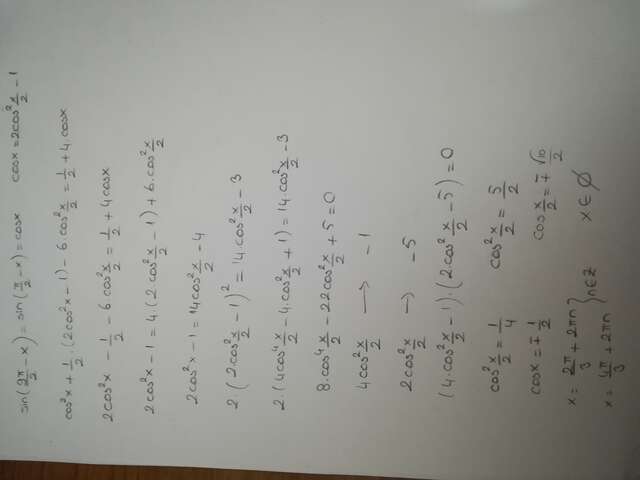 sin(2π/2 - x) = sin(π/2 - x) = cosx cosx = 2cos² x/2 - 1
cos²x + 1/2 · (2cos²x - 1) - 6cos² x/2 = 1/2 + 4cosx
2cos²x - 1/2 - 6·cos² x/2 = 1/2 + 4cosx
2cos²x - 1 = 4·(2·cos² x/2 - 1) + 6·cos² x/2
2cos²x - 1 = 14cos² x/2 - 4
2·(2cos² x/2 - 1)² = 14·cos² x/2 - 3
2·(4cos⁴ x/2 - 4·cos² x/2 + 1) = 14·cos² x/2 - 3
8·cos⁴ x/2 - 22cos² x/2 + 5 = 0
4cos² x/2 → -1
2cos² x/2 → -5
(4·cos² x/2 - 1)·(2cos² x/2 - 5) = 0
cos² x/2 = 1/4 cos² x/2 = 5/2
cosx = ∓ 1/2 cos x/2 = ∓ √10/2
x = 2π/3 + 2πn
x = 4π/3 + 2πn } n∈Z x ∈ ∅